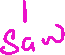 I
Saw